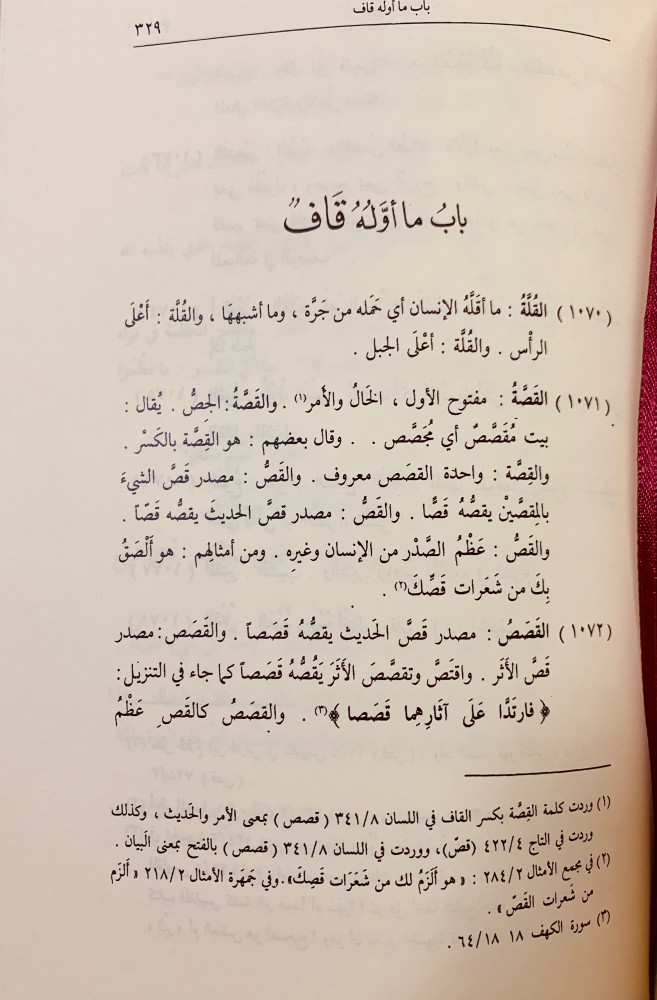 باب ما أوله قاف
٣٢٩
بابُ ما أوَّلهُ قَاف
(١٠٧٠) القُلَّةُ : ما أقَلَّهُ الإنسان أي حَمَله من جَرَّة ، وما أشبههَا ، والقُلَّة : أعْلَى
الرأْس . والقُلَّة : أعْلَى الجبل .
(١٠٧١) القَصَّةُ : مفتوح الأول ، الحَالُ والأَمر(١) . والقَصَّةُ : الجِصُّ . يُقال :
بيت مُقَصَّصٌ أي مُجَصَّص . . وقال بعضهم : هو القِصَّة بالكَسْر .
والقِصَّة : واحدة القصَص معروف . والقَصُّ : مصدر قَصَّ الشيءَ
بالمِقصَّيْن يقصُّهُ قَصًّا . والقَصُّ : مصدر قصَّ الحديثَ يقصُّه قَصّاً .
والقَصُّ : عَظْمُ الصَّدْر من الإنسان وغيرِه . ومن أمثالِهم : هو أَلْصَقُ
بِكَ من شَعَرات قَصِّكَ(٢) .
(١٠٧٢) القَصَصُ : مصدر قَصَّ الحَديث يقصُّهُ قَصَصاً . والقَصَص : مصدر
قَصَّ الأَثَر . واقتَصَّ وتقصَّصَ الأَثَرَ يَقُصُّهُ قَصَصاً كما جاء في التنزيل :
﴿ فارتَدَّا عَلَى آثارِهِما قَصَصا ﴾(٣) . والقصَصُ كالقَص عَظْمُ
(١) وردت كلمة القِصَّة بكسر القاف في اللسان ٣٤١/٨ ( قصص ) بمعنى الأمر والحَديث ، وكذلك
وردت في التاج ٤٢٢/٤ (قصّ)، ووردت في اللسان ٣٤١/٨ ( قصص ) بالفتح بمعنى البيان .
(٢) في مجمع الأمثال ٢٨٤/٢ : « هو ألْزَمُ لك من شَعَرَات قَصِكَ» . وفي جَمهَرة الأمثال ٢١٨/٢ « ألْزَم
من شَعرات القَصّ » .
(٣) سورة الكهف ١٨ ٦٤/١٨ .